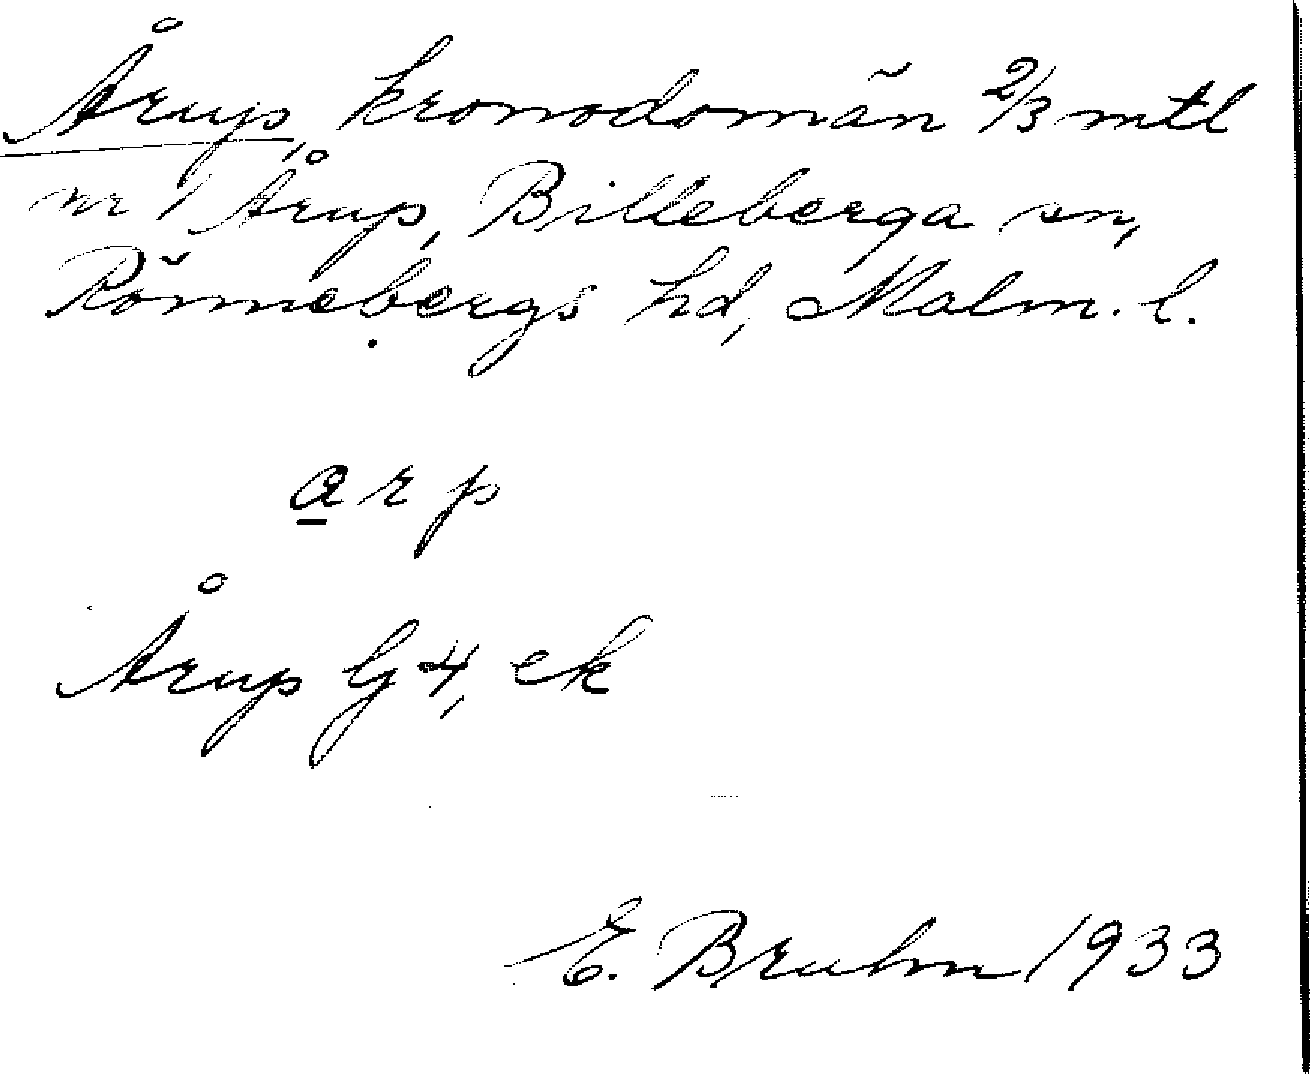 Årup, kronodomän 2/3 mtl
nr 1 Årup, Billeberga sn,
Rönnebergs hd, Malm. l.
a r p
Årup G 4, ek
E. Bruhn 1933